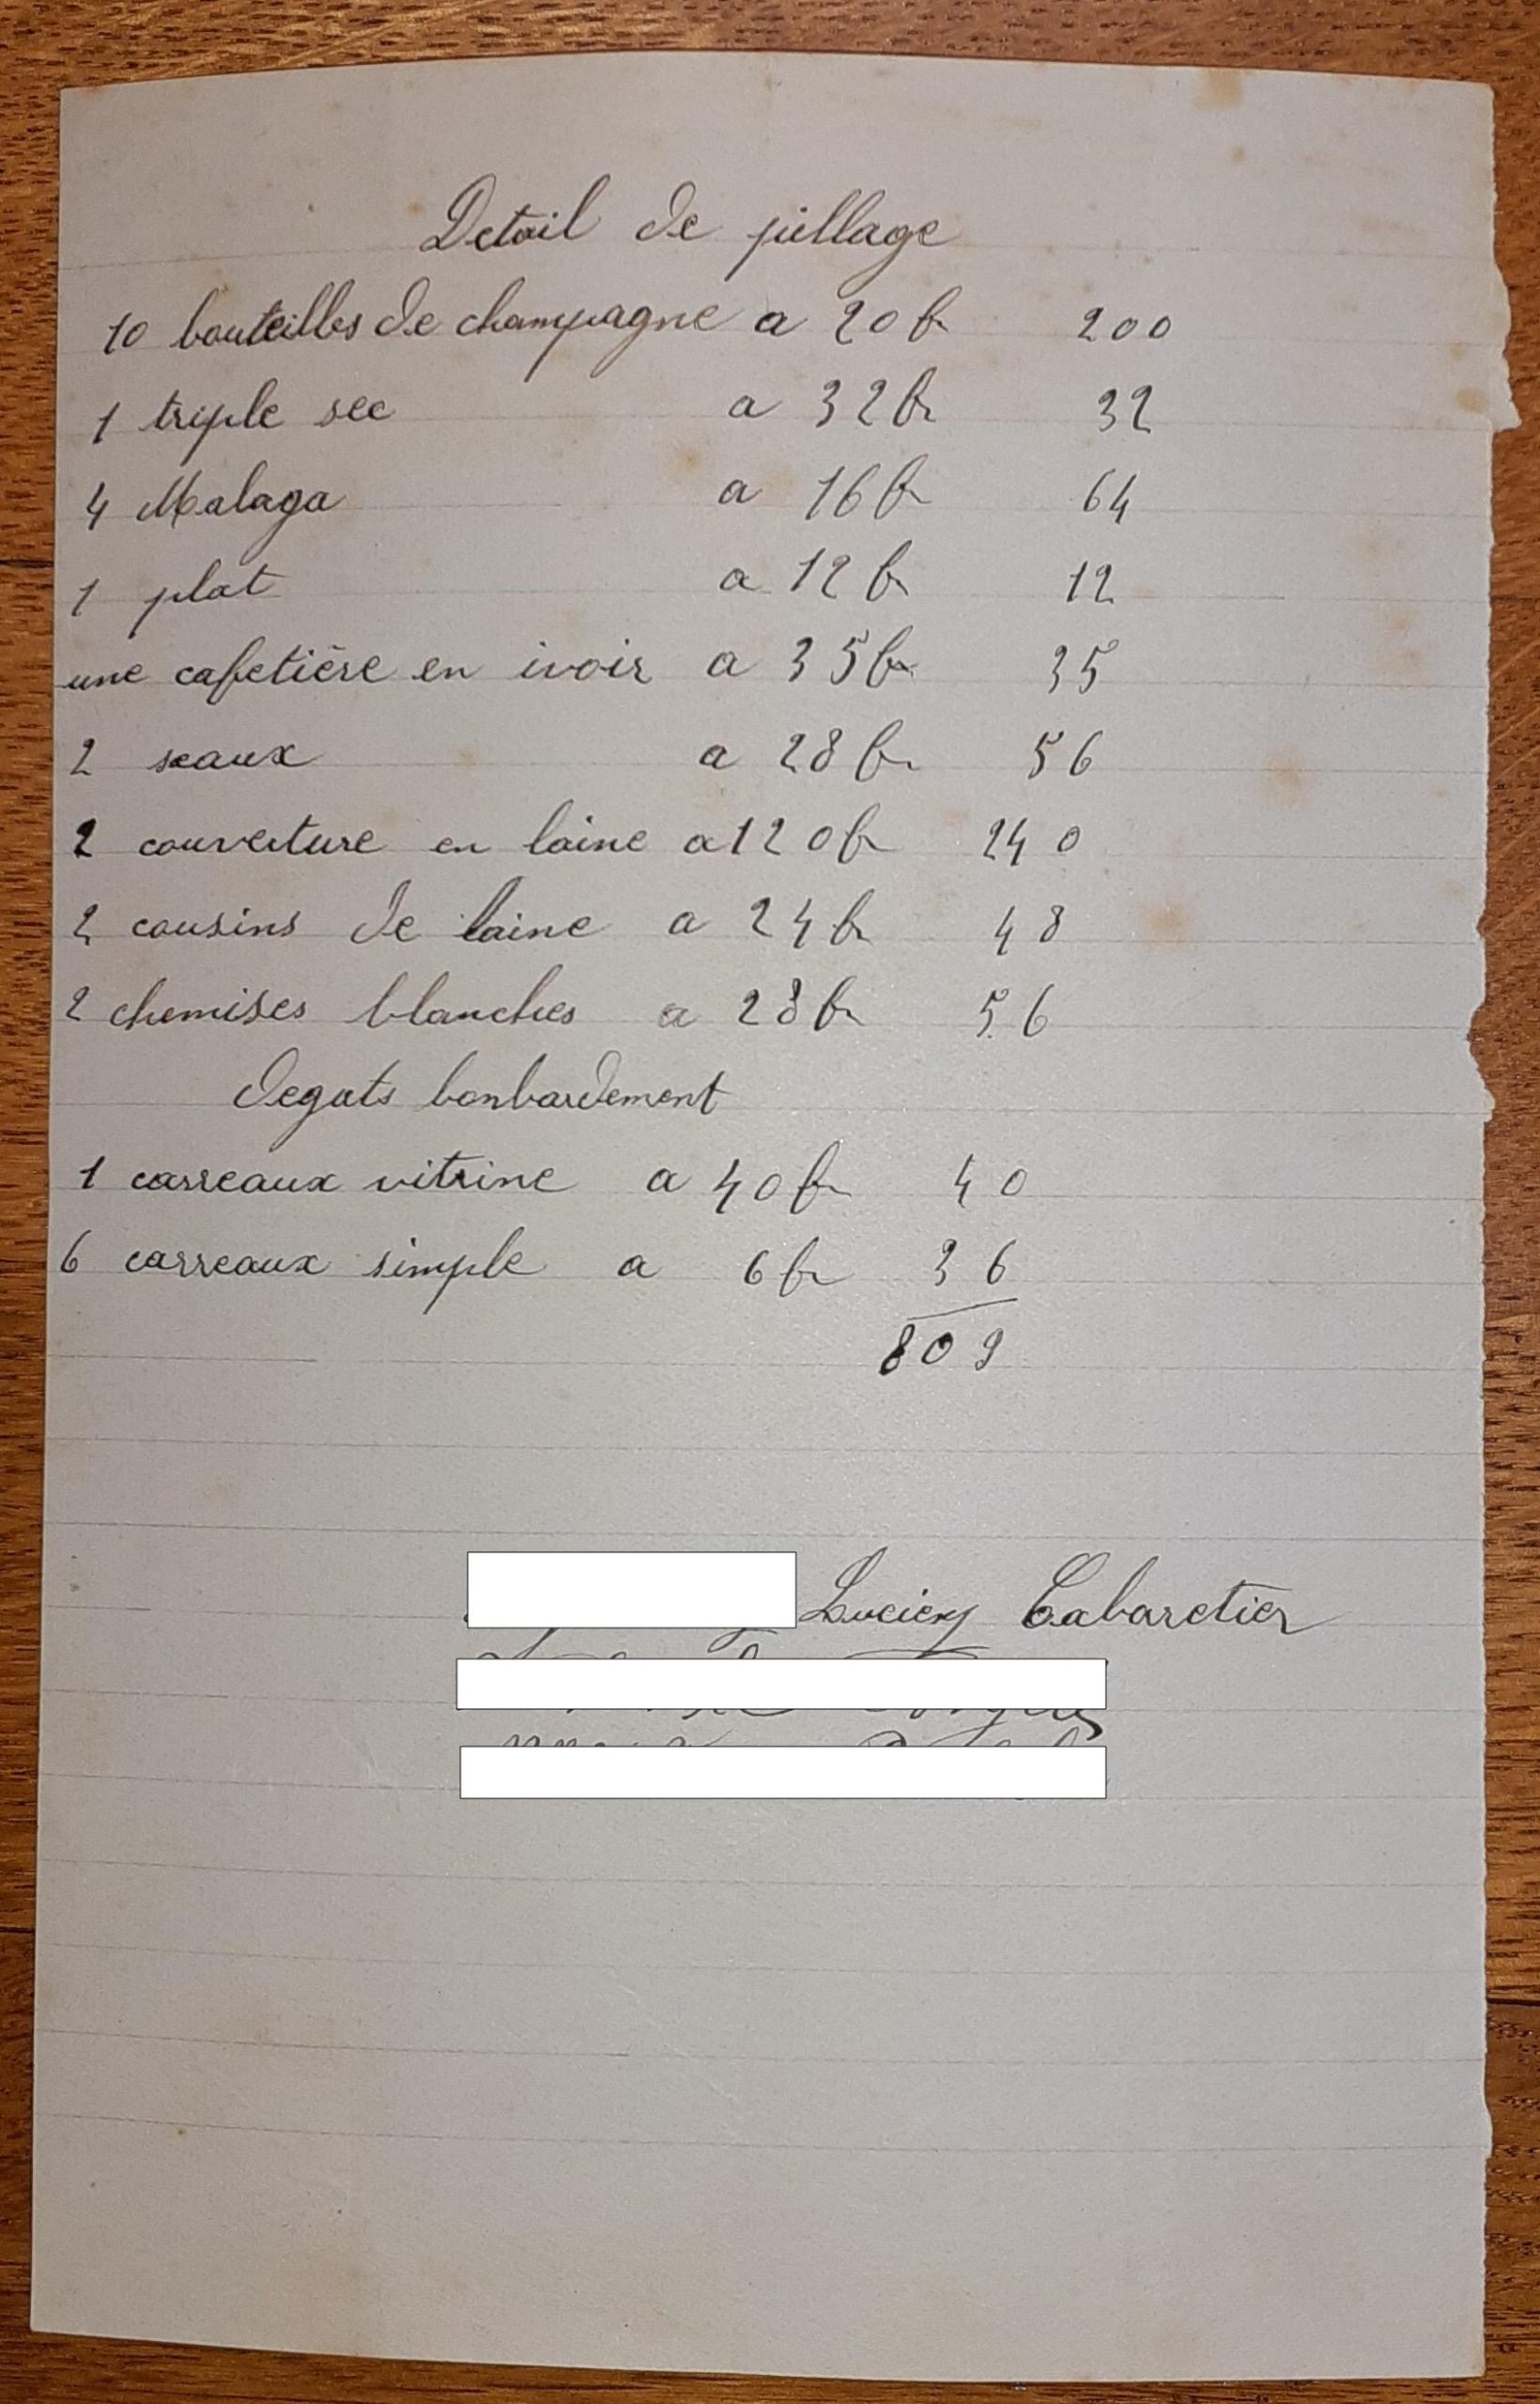 Detail de pillage
10 bouteilles de champagne a 20 fr 200
1 triple sec a 32 fr 32
4 Malaga a 16 fr 64
1 plat a 12 fr 12
une cafetière en ivoir a 35 fr 35
2 seaux a 28 fr 56
2 couverture en laine a 120 fr 240
2 cousins de laine a 24 fr 48
2 chemises blanches a 28 fr 56
degats bonbardement
1 carreaux vitrine a 40 fr 40
6 carreaux simple a 6 fr 36
809
Lucien Cabaretier